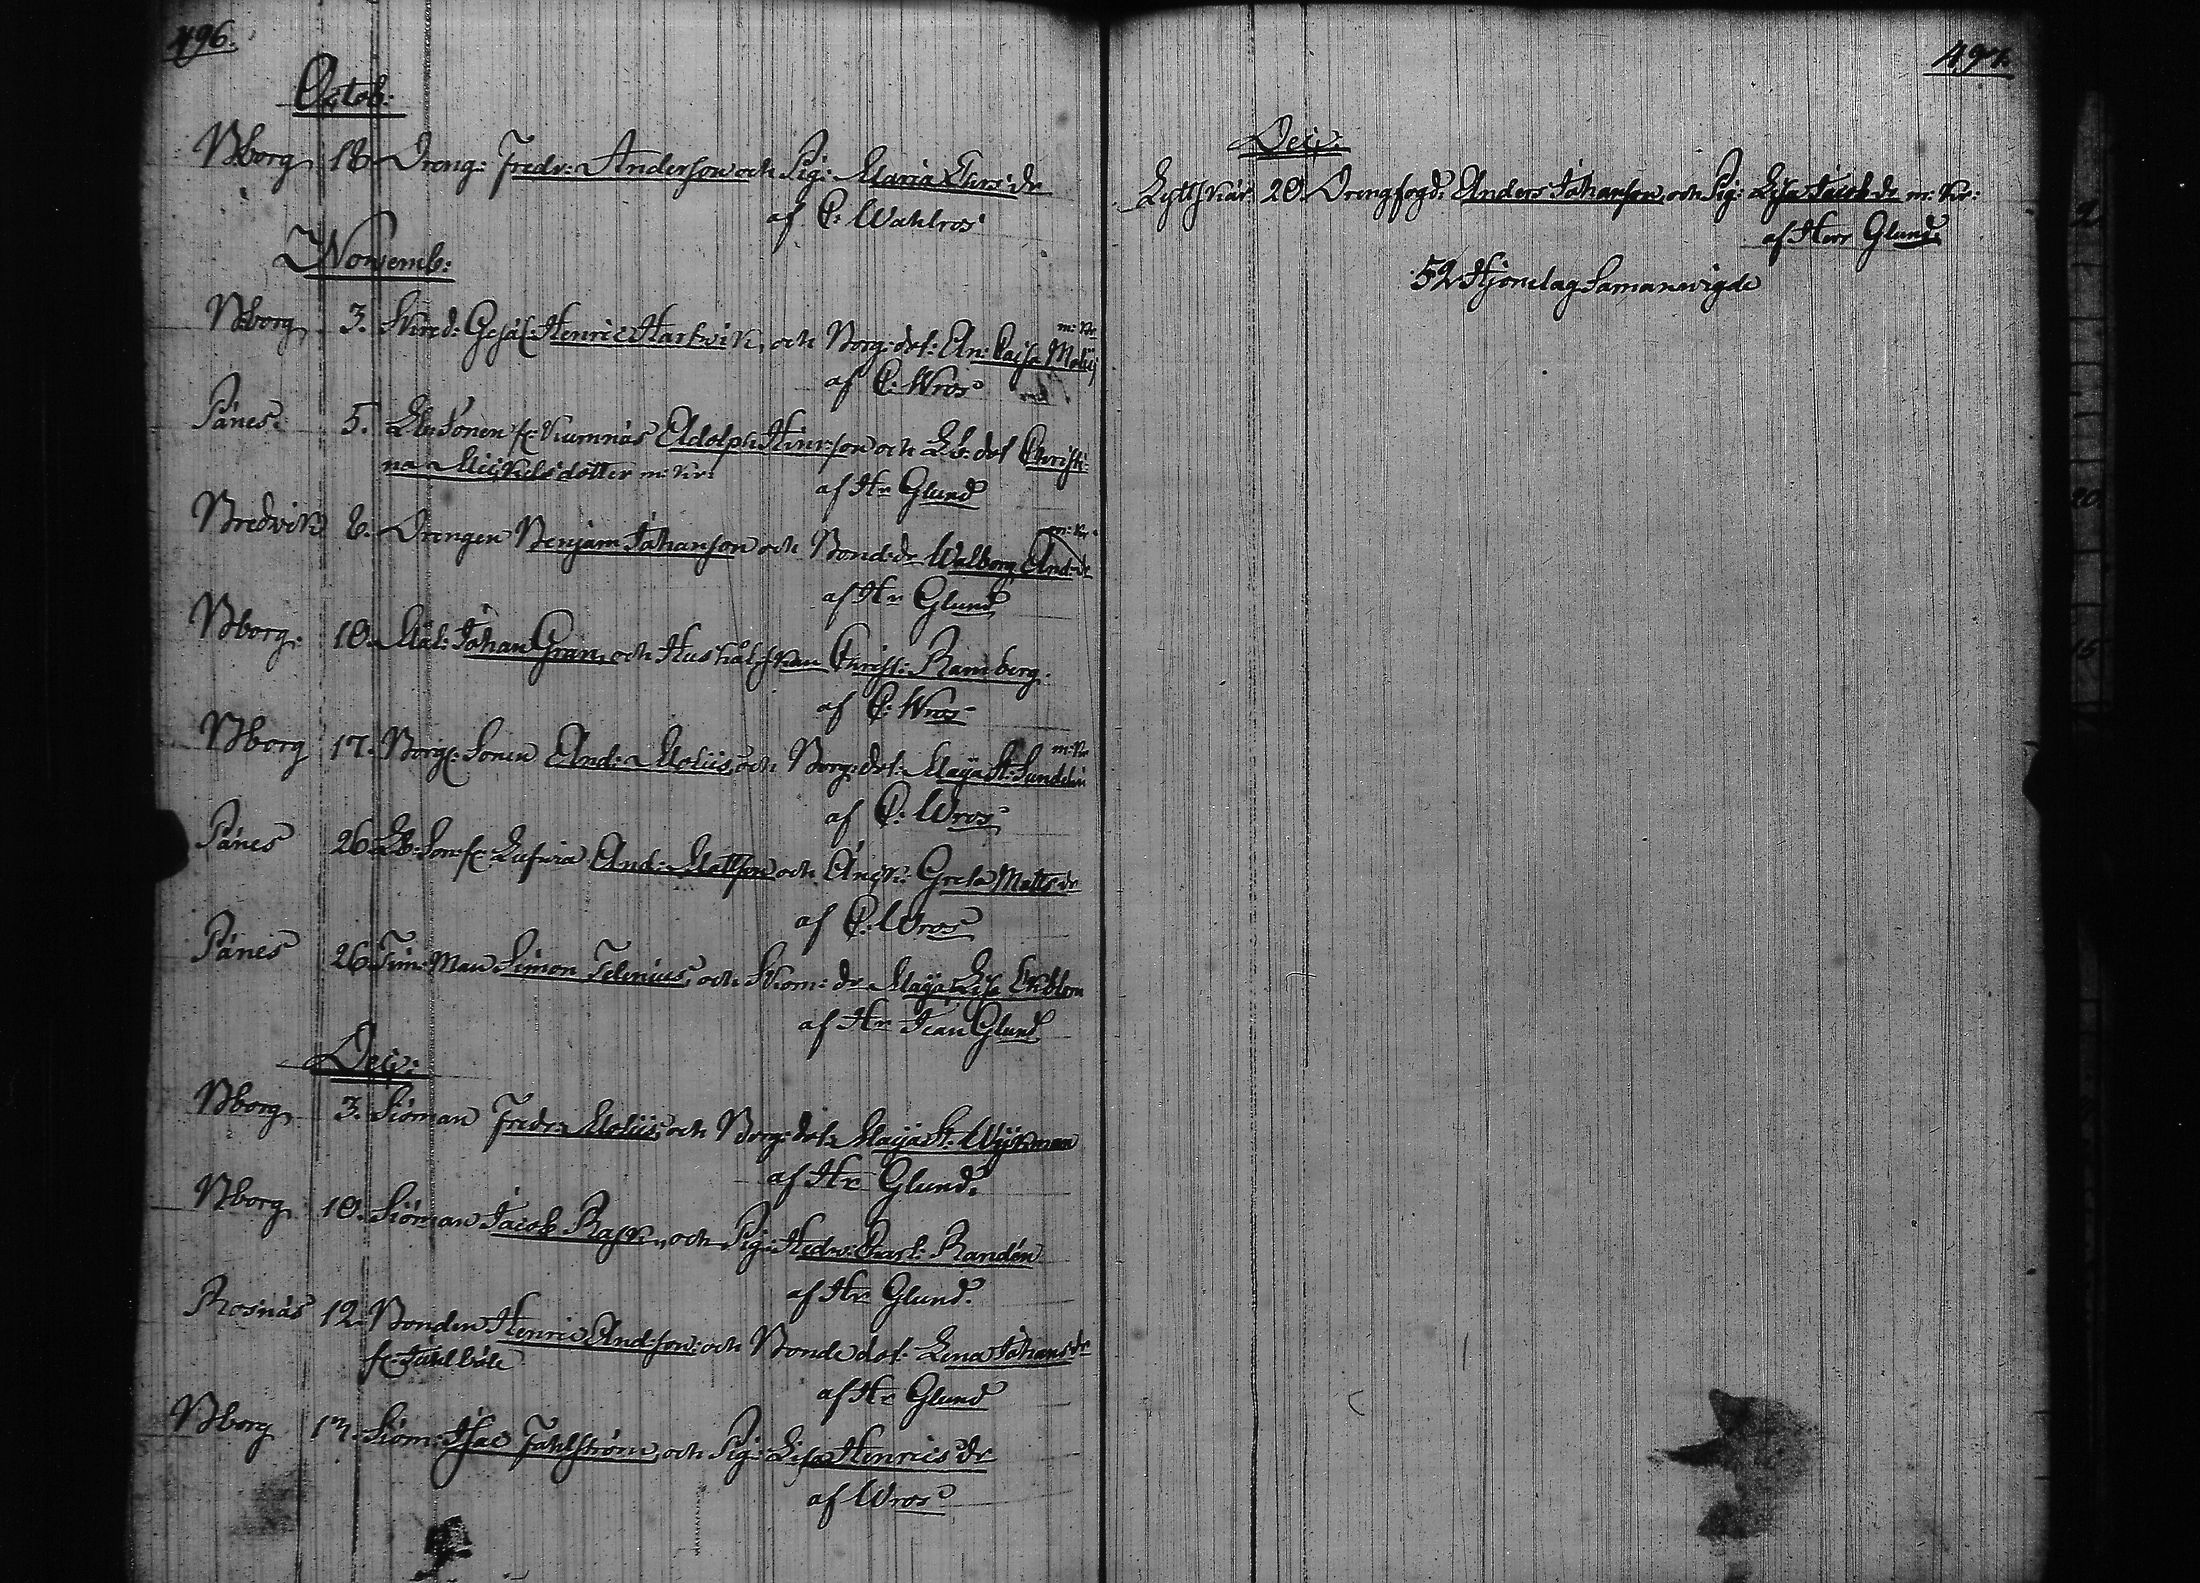 496.
Octob:
Nborg 18. Dreng: Fredr: Anderson och Pig: Maria Thrs:dr
af C: Wahlros
Novemb:
Nborg 3. Skred: Gesäl: Henric Hartvik, och Borg:dot: An: Caisa Moliis m: kr
af C: Wros
Pänes 5. Lb:Sonen fr: Kumnäs Adolph Hinr:son och Lb: dot Christi-
na Michelsdotter m: kr:
af Hr Glund
Bredvik 6. Drengen Benjam Johanson och Bond:dr Walborg And:dr m: kr:
af Hr Glund
Nborg. 10. Mål: Johan Gran, och Hushålskan Christ: Ramberg.
af C: Wros
Nborg 17. Borg: Sonen And: Moliis, och Borg:dot: Maja St: Sundelin m: kr
af C: Wros
Pänes 26. Lb: Son fr: Lufvia And: Mattson och Änk: Greta Matts:dr
af C: Wros
Pänes 26. Tim: Man Simon Telenius, och Skom: dr Maja Lisa Ekblom
af Hr Jean Glund
Dec:
Nborg 3. Siöman Fredr: Moliis, och Borg:dot: Maija St: Wijkman
af Hr Glund.
Nborg 10. Siöman Jacob Rask, och Pig: Hedv: Charl: Randén
af Hr Glund.
Rosnäs 12. Bonden Henric And:son: och Bonde dot: Lena Johans dr
fr:
af Hr Glund
Nborg 17. Siöm: Isac Fahlström, och Pig: Lisa Henrics dr
af Wros
497.
Dec:
Lyttskär 20. Drengfogd: Anders Johanson, och Pig: Lisa Jacob dr m: kr:
af Herr Glund.
52 Hjonelag Samanvigde